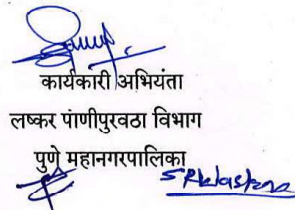 कार्यकारी अभियंता
लष्कर पाणीपुरवठा विभाग
पुणे महानगरपालिका